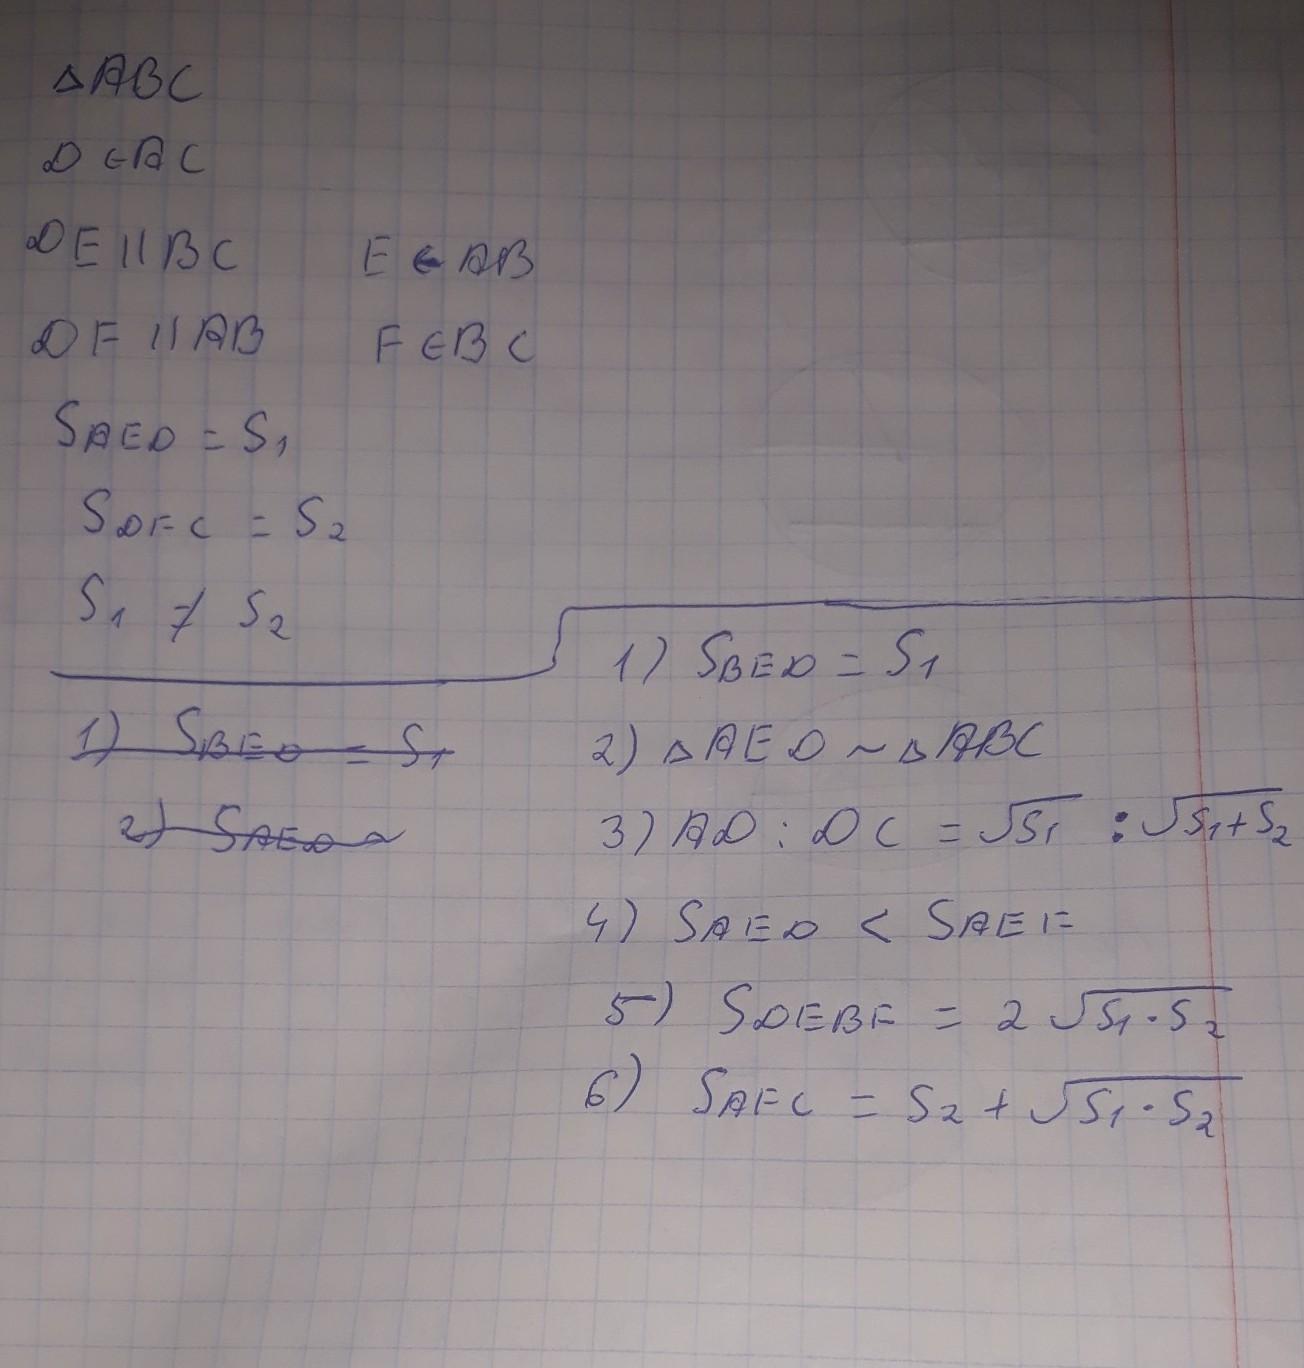 △ABC
D ∈ AC
DE || BC E ∈ AB
DF || AB F ∈ BC
S_AED = S_1
S_DFC = S_2
S_1 ≠ S_2
1) S_BED = S_1
1) S_BED = S_1
2) △AED ~ △ABC
2) S_AED ~
3) AD : DC = √S_1 : √S_1+S_2
4) S_AED < S_AEF
5) S_DEBF = 2 √S_1 · S_2
6) S_AFC = S_2 + √S_1 · S_2